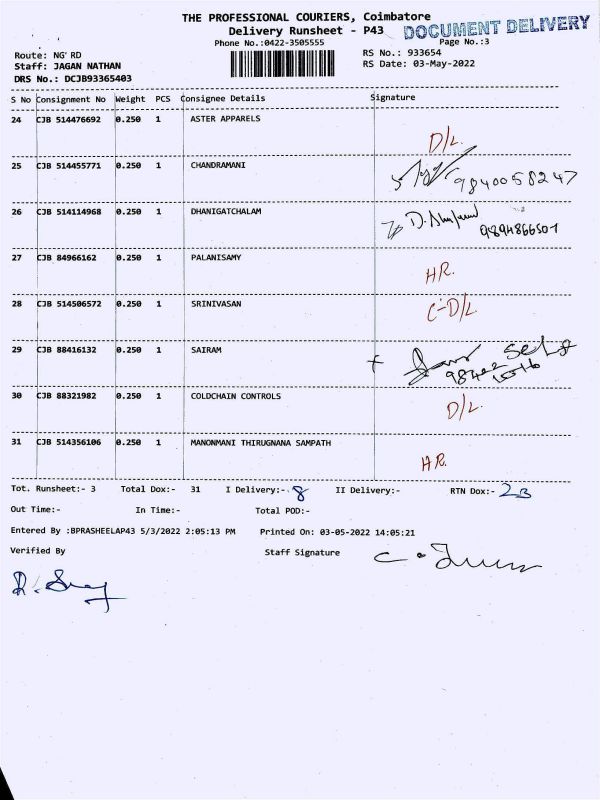 THE PROFESSIONAL COURIERS, Coimbatore
Delivery Runsheet - P43
DOCUMENT DELIVERY
Phone No.:0422-3505555
Page No.:3
Route: NG' RD
RS No.: 933654
Staff: JAGAN NATHAN
RS Date: 03-May-2022
DRS No.: DCJB93365403
S No Consignment No Weight PCS Consignee Details Signature
24 CJB 514476692 0.250 1 ASTER APPARELS
D/L.
25 CJB 514455771 0.250 1 CHANDRAMANI
9840058247
26 CJB 514114968 0.250 1 DHANIGATCHALAM
9894866501
27 CJB 84966162 0.250 1 PALANISAMY
HR.
28 CJB 514506572 0.250 1 SRINIVASAN
C-D/L
29 CJB 88416132 0.250 1 SAIRAM
Self
30 CJB 88321982 0.250 1 COLDCHAIN CONTROLS
D/L.
31 CJB 514356106 0.250 1 MANONMANI THIRUGNANA SAMPATH
HR.
Tot. Runsheet:- 3 Total Dox:- 31 I Delivery:- 8 II Delivery:- RTN Dox:- 23
Out Time:- In Time:- Total POD:-
Entered By :BPRASHEELAP43 5/3/2022 2:05:13 PM Printed On: 03-05-2022 14:05:21
Verified By Staff Signature